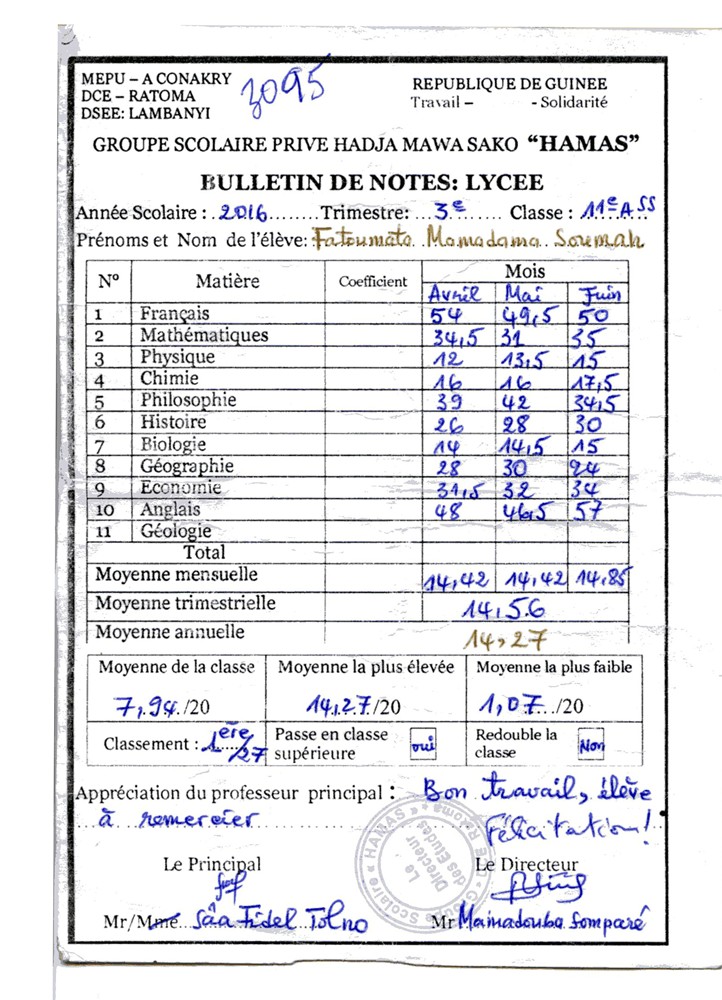 MEPU – A CONAKRY
DCE – RATOMA
DSEE: LAMBANYI
3095
REPUBLIQUE DE GUINEE
Travail – - Solidarité
GROUPE SCOLAIRE PRIVE HADJA MAWA SAKO “HAMAS”
BULLETIN DE NOTES: LYCEE
Année Scolaire : 2016 Trimestre: 3e Classe : 11e A SS
Prénoms et Nom de l'élève: Fatoumata Mamadama Soumah
N° Matière Coefficient Mois
Avril Mai Juin
1 Français 54 49,5 50
2 Mathématiques 34,5 31 35
3 Physique 12 13,5 15
4 Chimie 16 16 17,5
5 Philosophie 39 42 34,5
6 Histoire 26 28 30
7 Biologie 14 14,5 15
8 Géographie 28 30 24
9 Economie 31,5 32 34
10 Anglais 48 46,5 57
11 Géologie
Total
Moyenne mensuelle 14,42 14,42 14,85
Moyenne trimestrielle 14,56
Moyenne annuelle 14,27
Moyenne de la classe Moyenne la plus élevée Moyenne la plus faible
7,94/20 14,27/20 1,07/20
Classement : 1ère/27 Passe en classe supérieure oui Redouble la classe Non
Appréciation du professeur principal : Bon travail, élève
à remercier Félicitation!
Le Principal Le Directeur
Le Directeur des Etudes
Scolaire « HAMAS »
Mr/Mme Sâa Fidel Tolno Mr Mamadouba Somparé